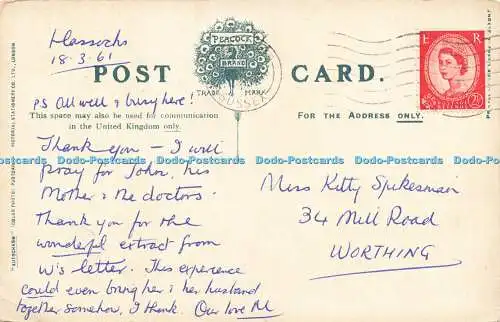 Hassocks
18-3-61
PEACOCK
BRAND
TRADE MARK
SUSSEX
POST CARD.
E R
2½D
PS All well & busy here!
This space may also be used for communication
in the United Kingdom only.
FOR THE ADDRESS ONLY.
Thank you – I will
pray for John, his
Mother & the doctors.
Thank you for the
wonderful extract from
W's letter. This experience
could even bring her & her husband
together somehow, I think. Our love
Miss Kitty Spikesman
34 Mill Road
WORTHING
Dodo-Postcards Dodo-Postcards Dodo-Postcards Dodo-Postcards Dodo-Postcards Dodo-Postcards